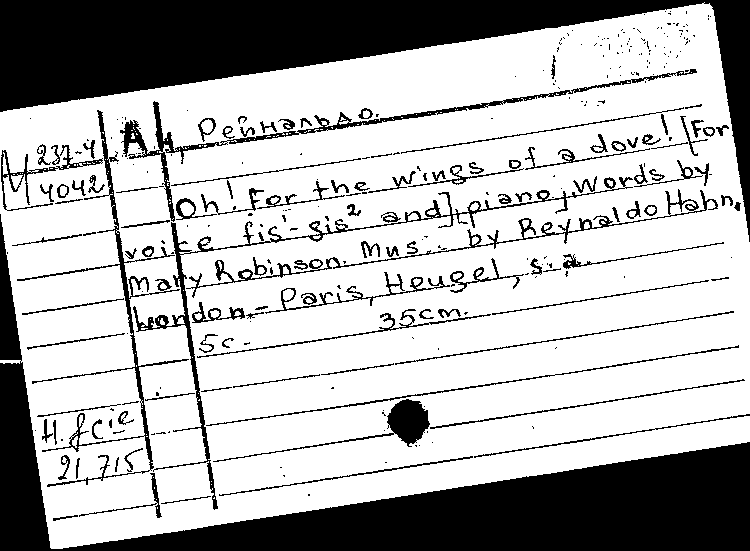 А н, Рейнальдо.
М 237-4
4042
Oh! For the wings of a dove! [For
voice fis¹-gis² and] piano; Words by
Mary Robinson. Mus... by Reynaldo Hahn.
London.- Paris, Heugel, s.a.
5c. 35cm.
H. & cie
21,715